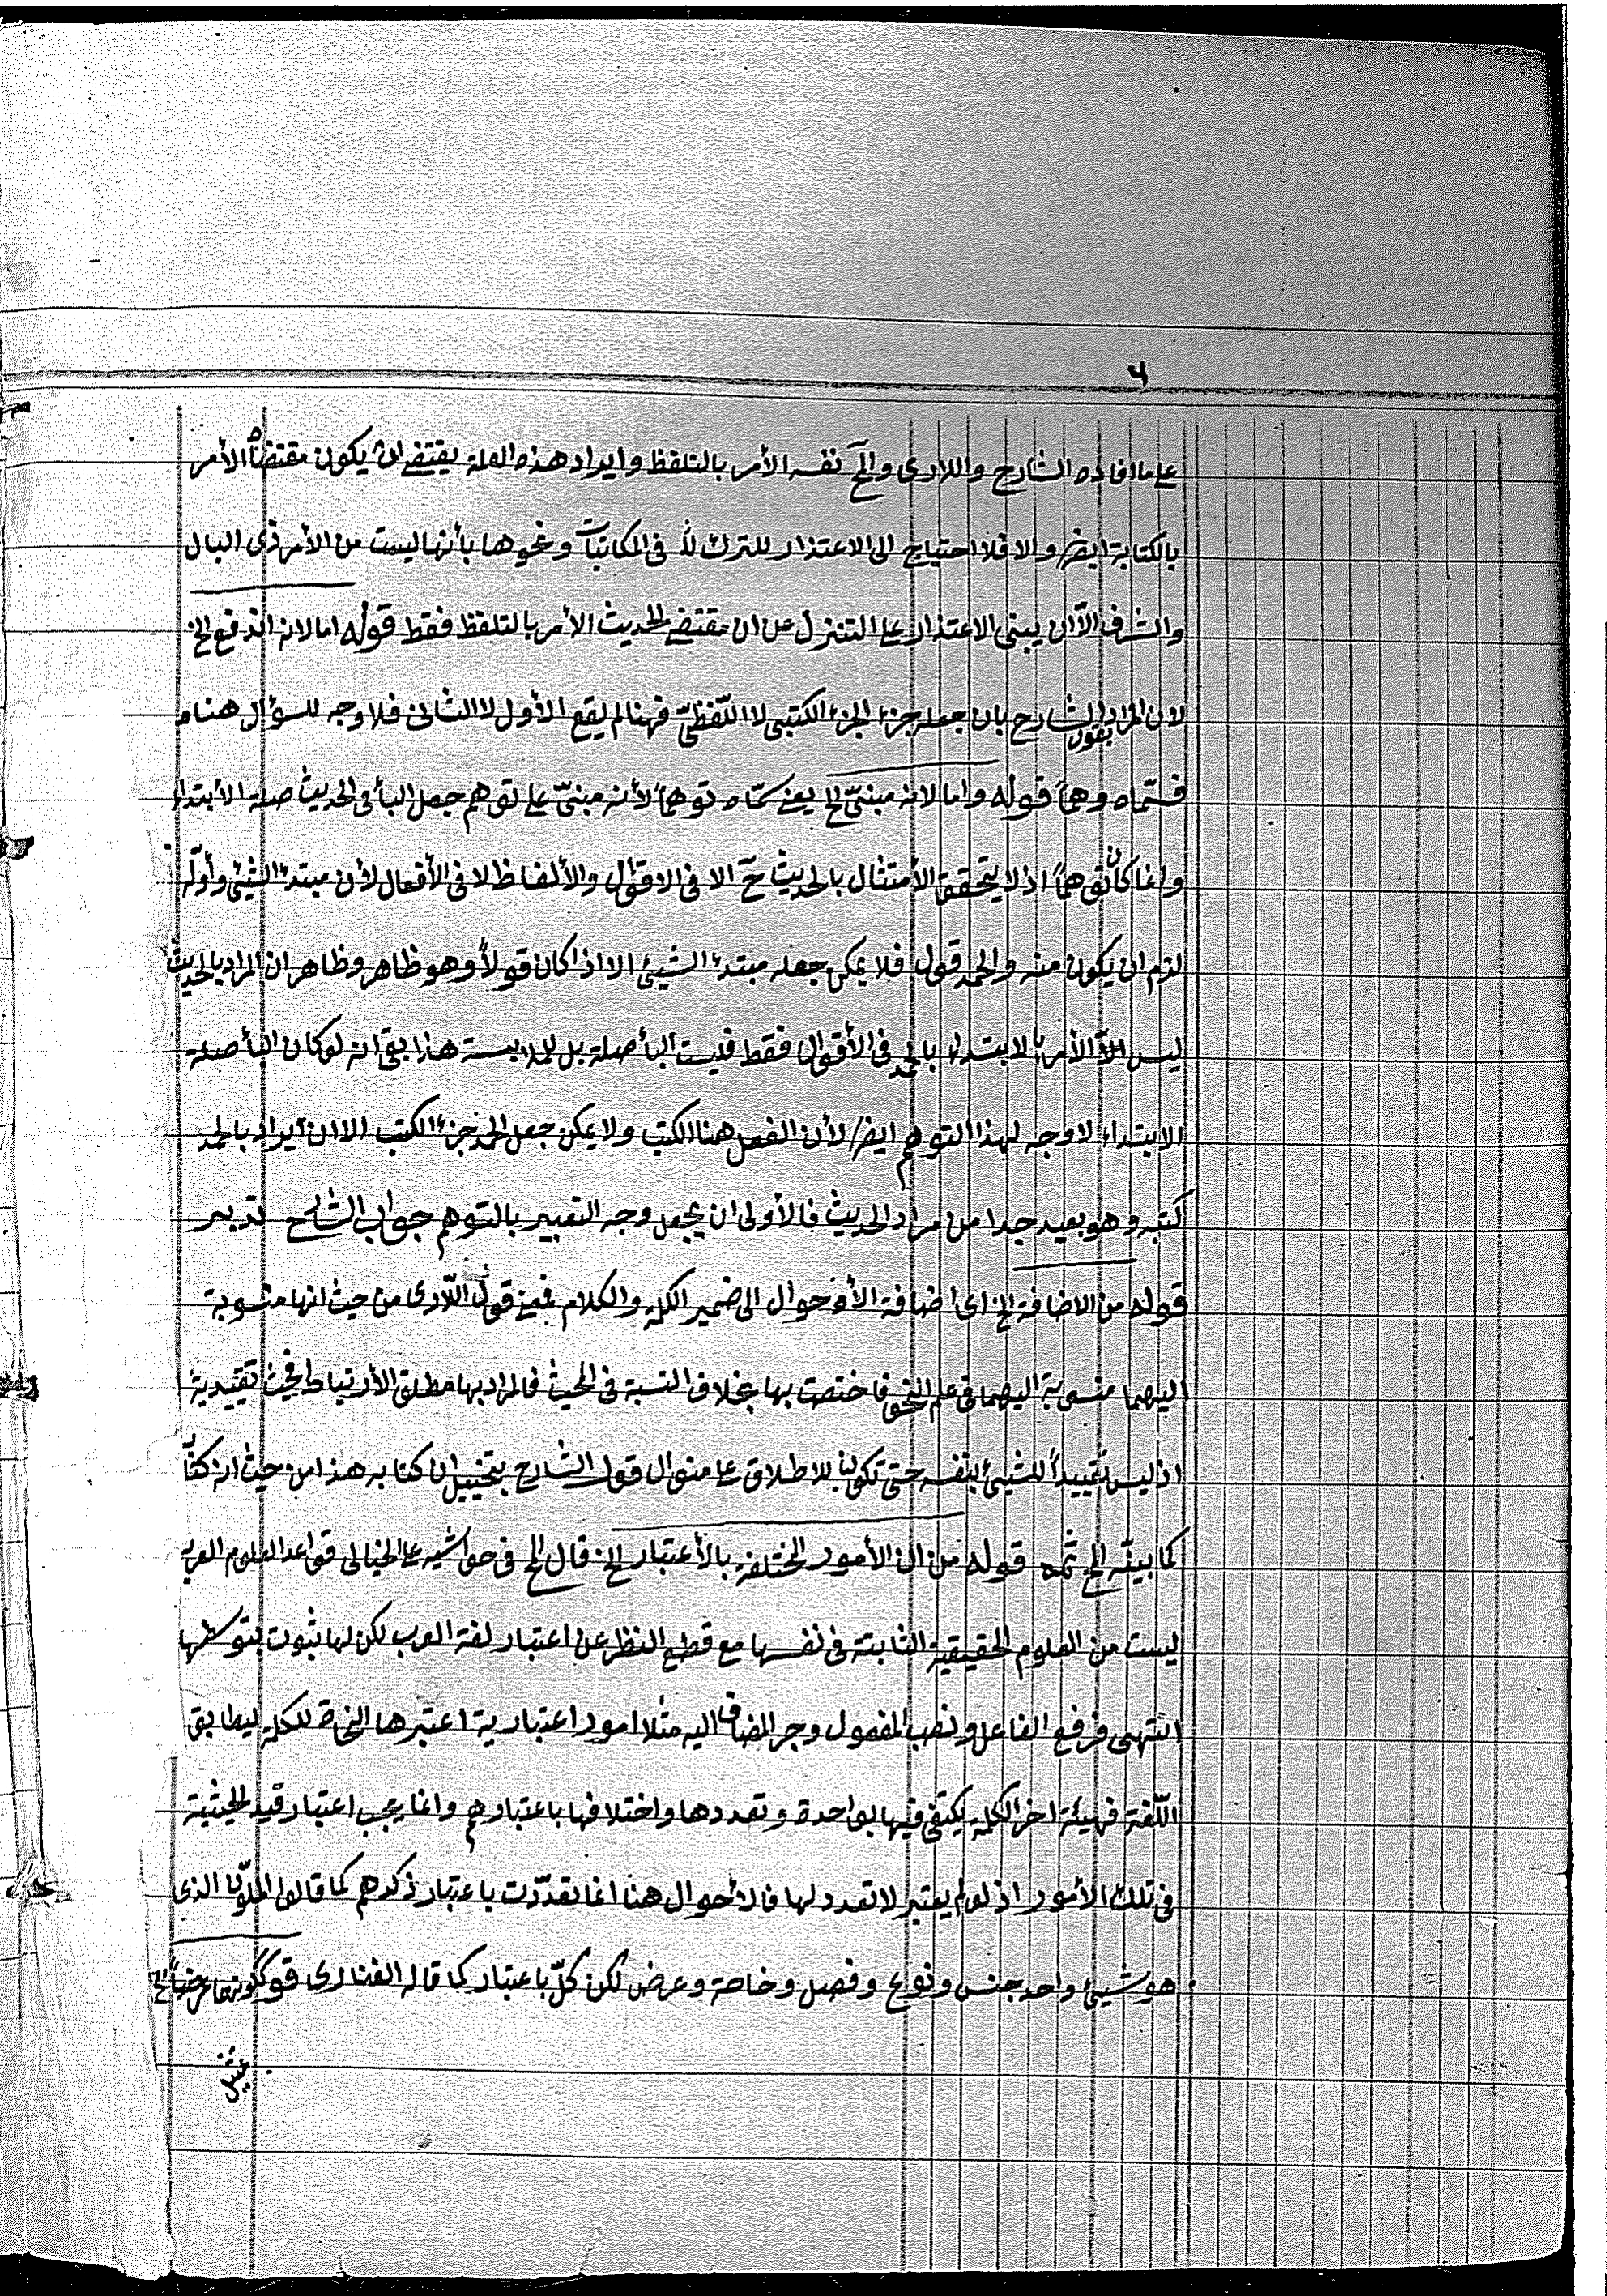 ٦
على ما افاده الشارح واللارى والح نفسه الأمر بالتلفظ وايراد هذه العلة يقتضى ان يكون مقتضاه الأمر
بالكتابة ايضا والا فلا احتياج الى الاعتذار للترك في المكاتبات ونحوها بأنها ليست من الأمر ذى البال
والشرف الّا ان يبنى الاعتذار على التنزل عن ان مقتضى الحديث الأمر بالتلفظ فقط قوله اما لانه اندفع الخ
لان المراد بقول الشارح بان جعله جزء الجزء الكتبى لا اللّفظىّ فههنا لم يقع الأول لا الثانى فلا وجه للسؤال هنا
فسمّاه وهماً قوله واما لانه مبنىّ الخ يعنى سمّاه توهماً لأنه مبنىّ على توهم جعل البأ فى الحديث صلة الأبتداء
وانما كان توهماً اذ لا يتحقق الأمتثال بالحديث ح الا فى الاقوال والألفاظ لا فى الأفعال لأن مبتدء الشيئ وأوّله
لزم ان يكون منه والحمد قول فلا يمكن جعله مبتدء الشيئ الا اذا كان قولاً وهو ظاهر وظاهر ان المراد بالحديث
ليس الّا الأمر بالابتداء بالحمد فى الأقوال فقط فليست البأ صلة بل للملابسة هذا بقى انه لو كان البأ صلة
الابتداء لا وجه لهذا التوهم ايضا لأن الفعل هنا الكتب ولا يمكن جعل الحمد جزء الكتب الا ان يراد بالحمد
كتبه وهو بعيد جدا من مراد الحديث فالأولى ان يجعل وجه التعبير بالتوهم جواب الشارح تدبر
قوله من الاضافة الخ اى اضافة الأحوال الى ضمير الكلمة والكلام فمعنى قول اللّارى من حيث انها منسوبة
اليهما منسوبة اليهما فى علم النحو فاختصت بها بخلاف النسبة فى الحيث فالمراد بها مطلق الأرتباط فالحيث تقييدية
اذ ليس تقييداً للشيئ بنفسه حتى تكون للاطلاق على منوال قول الشارح بتخييل ان كتابه هذا من حيث انه كتاب
كما بيّنه الح ثمه قوله من ان الأمور المختلفة بالأعتبار الخ قال الح فى حواشيه على الخيالى قواعد العلوم العربية
ليست من العلوم الحقيقية الثابتة فى نفسها مع قطع النظر عن اعتبار لغة العرب لكن لها ثبوت بتوسطها
انتهى فرفع الفاعل ونصب المفعول وجر المضاف اليه مثلا امور اعتبارية اعتبرها النحاة للكلمة ليطابق
اللّغة فهيئة اخر الكلمة يكتفى فيها بواحدة وتعددها واختلافها باعتبارهم وانما يجب اعتبار قيد الحيثية
فى تلك الأمور اذ لو لم يعتبر لا تعدد لها فالأحوال هنا انما تعدّدت باعتبار ذكرهم كما قالوا الملوّن الذى
هو شيئ واحد جنس ونوع وفصل وخاصة وعرض لكن كلّ باعتبار كما قاله الفنارى قوله كونها عرضا الخ